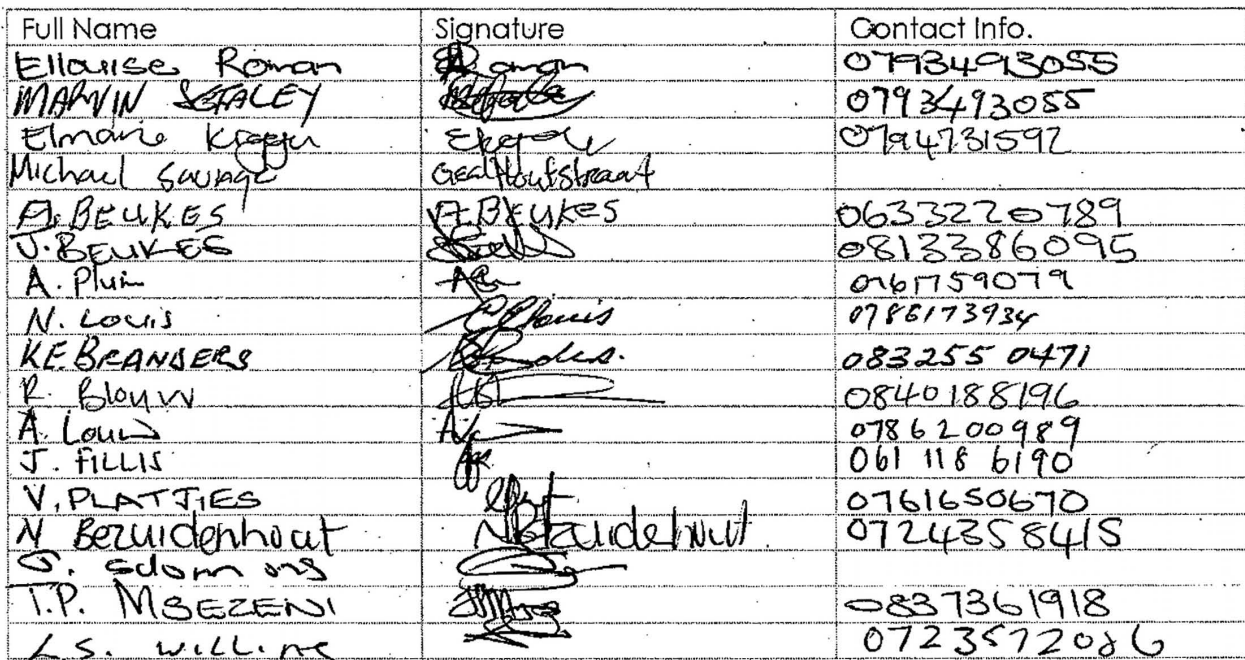 Full Name Signature Contact Info.
Ellouise Roman Roman 0793493055
MARVIN 0793493055
Elmarie 0794731592
Michael Savage Geelhoutstraat
A. BEUKES A. BEUKES 0633220789
J. BEUKES 0813386095
A. Pluim 0761759079
N. Louis Louis 0786173934
K.E. BRANDERS 083255 0471
R. Blouw 0840188196
A. Louw 0786200989
J. FILLIS 061 118 6190
V. PLATJIES 0761650670
N Bezuidenhout NBezuidehout 0724358415
T.P. MSEZENI 0837361918
L.S. 0723572086